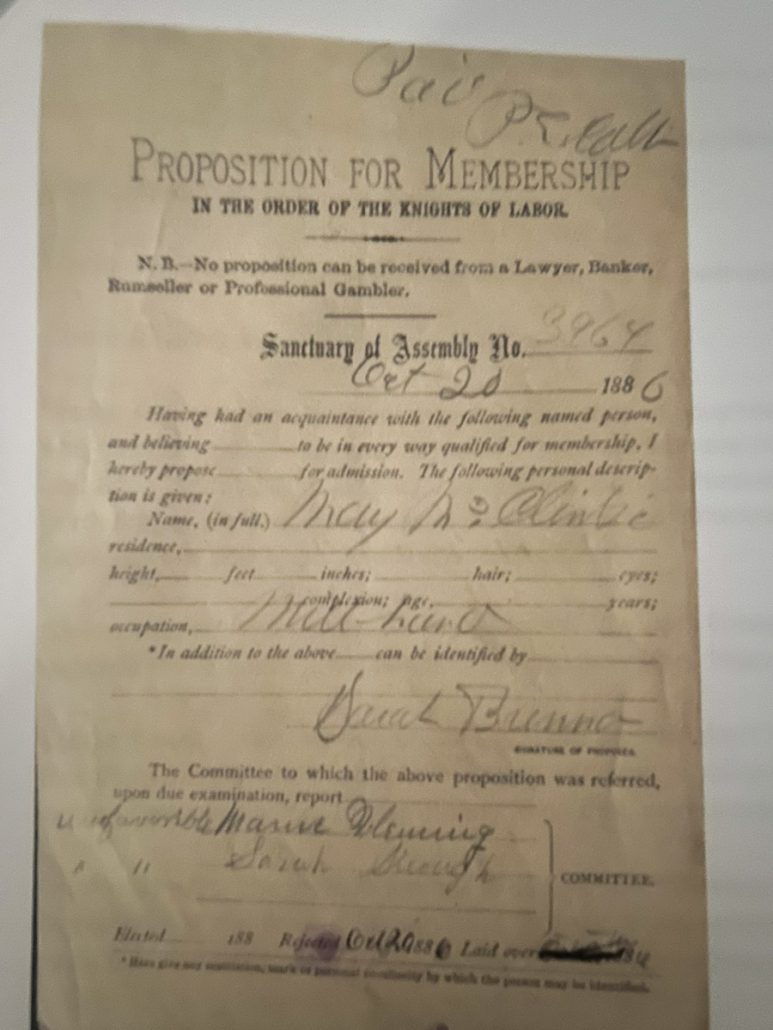 Paid
PROPOSITION FOR MEMBERSHIP
IN THE ORDER OF THE KNIGHTS OF LABOR.
N. B.—No proposition can be received from a Lawyer, Banker,
Rumseller or Professional Gambler.
Sanctuary of Assembly No. 3964
Oct 20 1886
Having had an acquaintance with the following named person,
and believing to be in every way qualified for membership, I
hereby propose for admission. The following personal descrip-
tion is given:
Name, (in full.) May McClintic
residence,
height, feet inches; hair; eyes;
complexion; age, years;
occupation, Mill hand
*In addition to the above can be identified by
Sarah Brennan
SIGNATURE OF PROPOSER.
The Committee to which the above proposition was referred,
upon due examination, report
unfavorible Fleming
" " Sarah
COMMITTEE.
Elected 188 Rejected Oct 20 1886 Laid over
* Here give any mark or personal peculiarity by which the person may be identified.